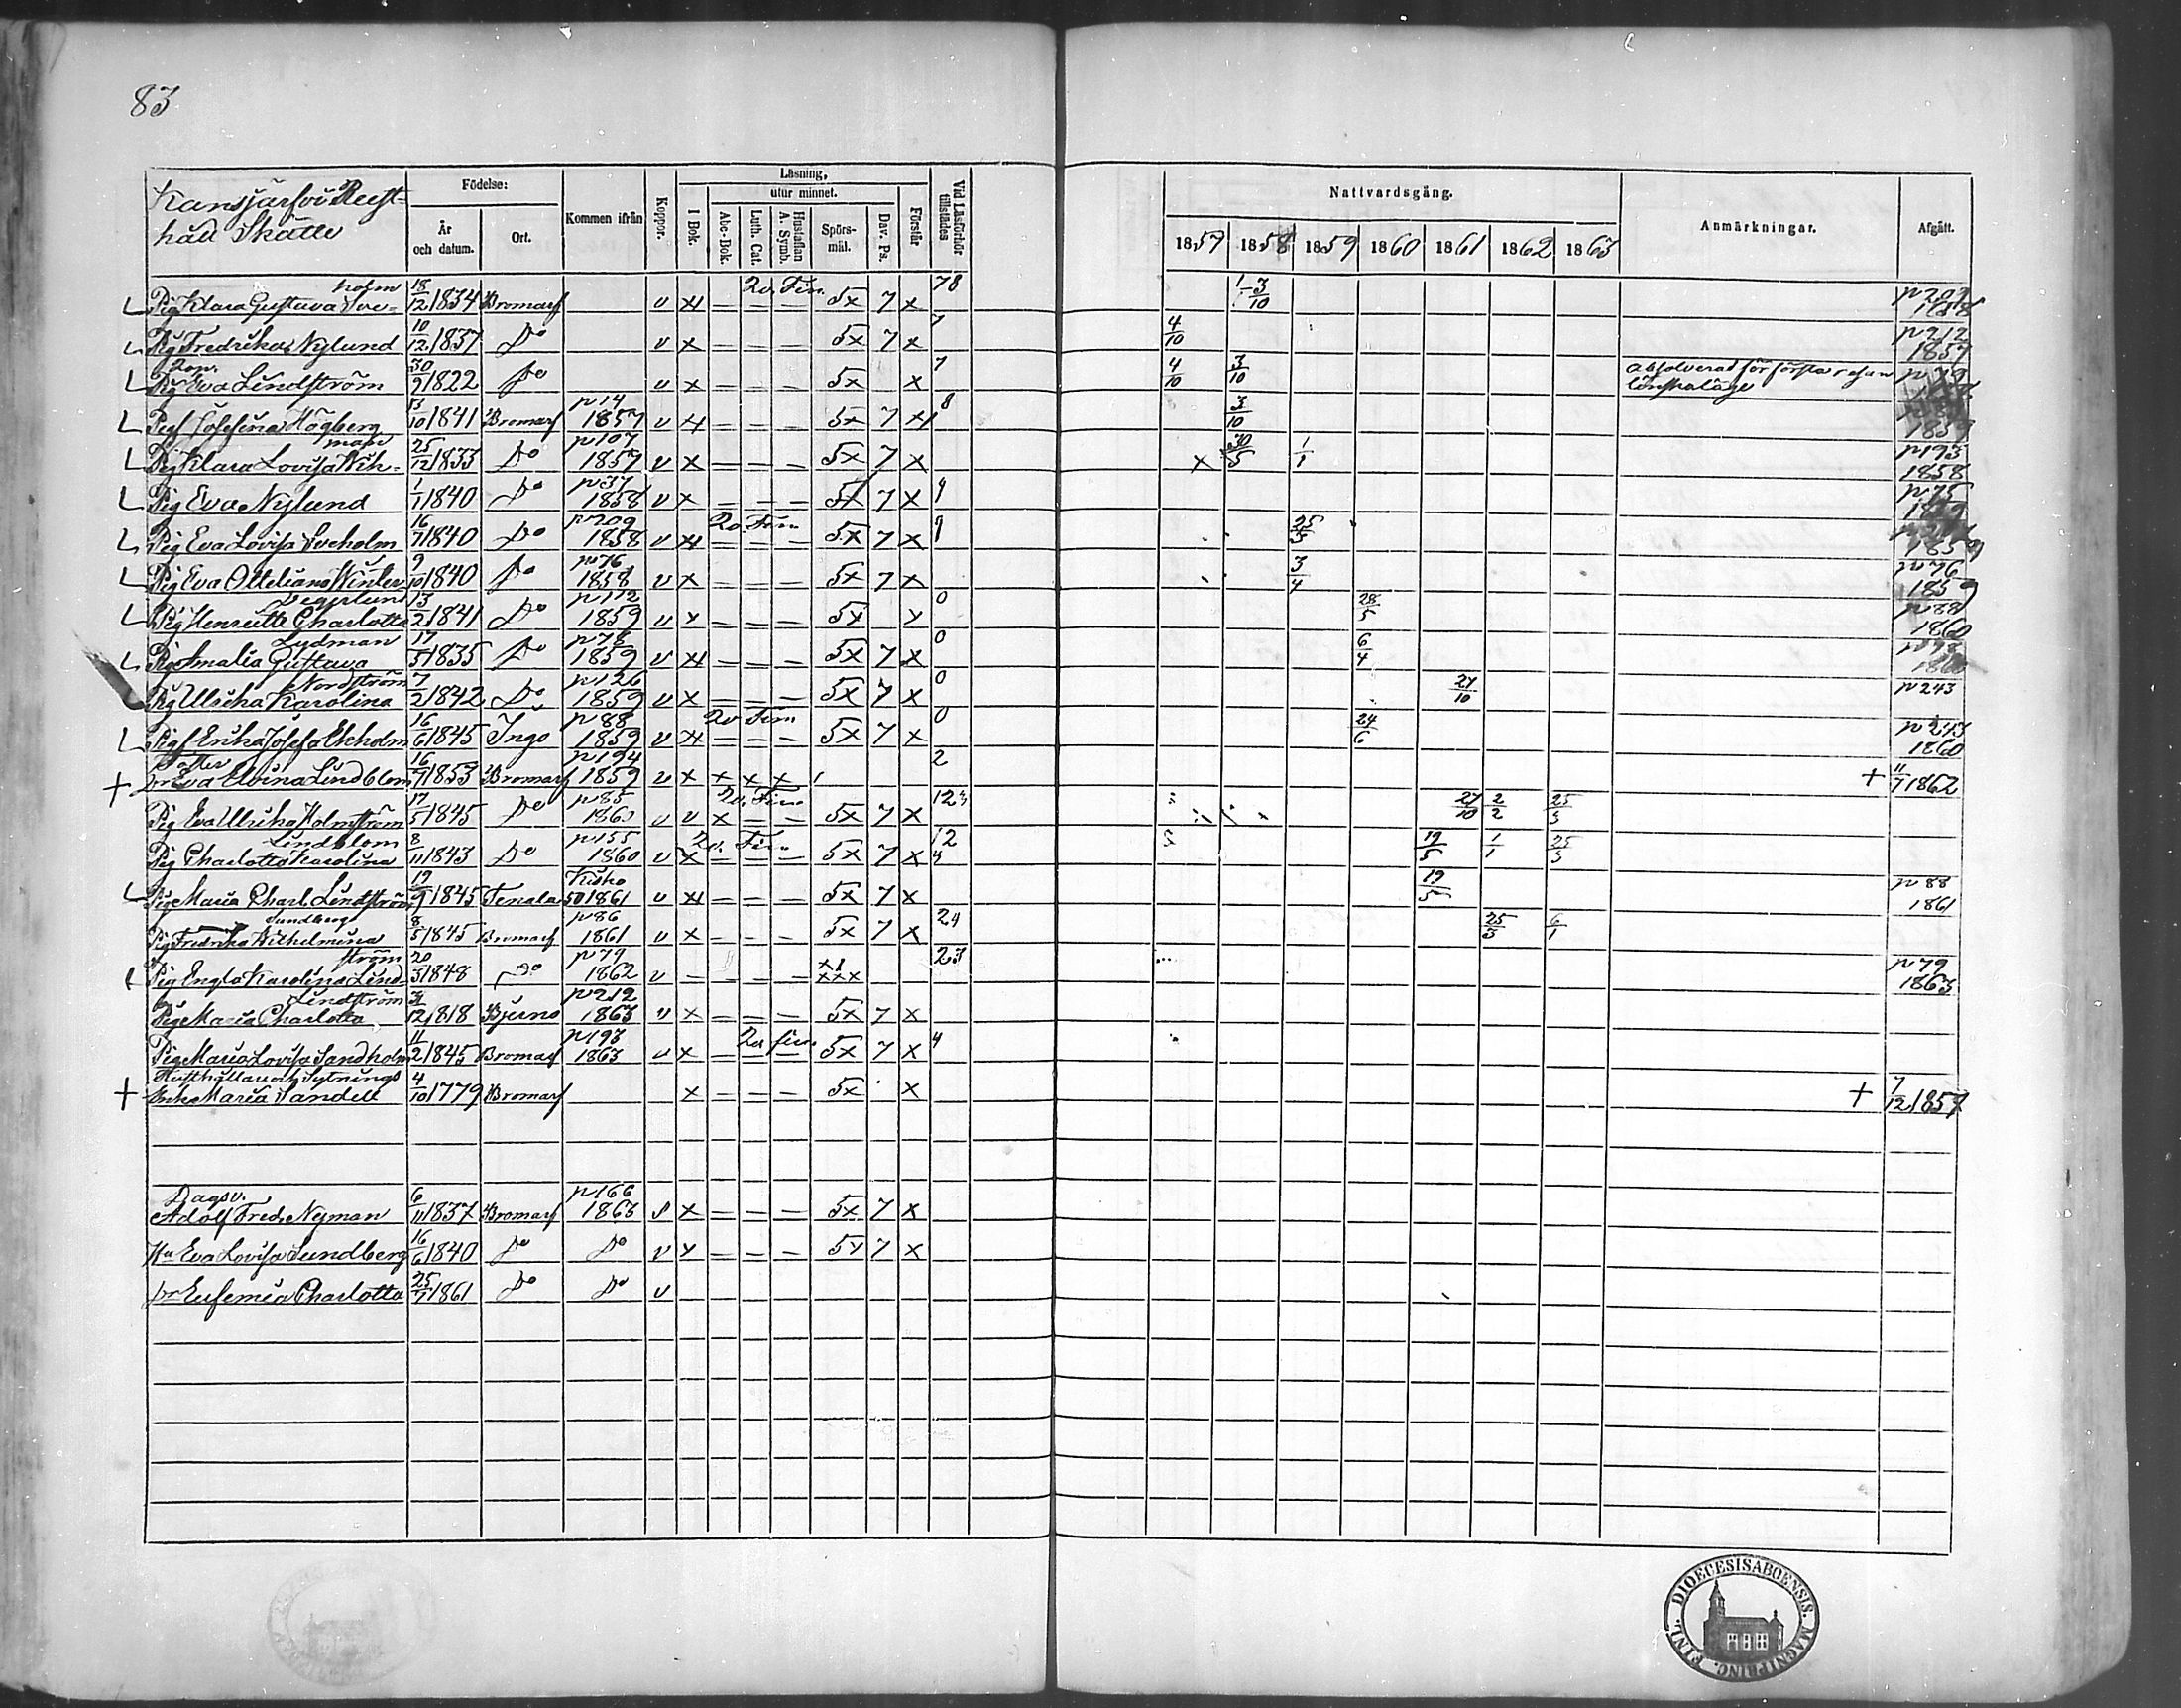 83
Kansjärfvi Rust-
håll Skatte
Födelse:
År
och datum.
Ort.
Kommen ifrån
Koppor.
Läsning,
I Bok.
utur minnet.
Abc-Bok.
Luth. Cat.
Hustaflan
A Symb.
Spörs-
mål.
Dav. Ps.
Förstår
Vid Läsförhör
tillstädes
Nattvardsgång.
1857 1858 1859 1860 1861 1862 1863
Anmärkningar.
Afgått.
holm
Pig Klara Gustava Sve- 18/12 1834 Bromarf v x — — — 5x 7 x 78 3/10 p 209
Pig Fredrika Nylund 10/12 1837 Do v x — — — 5x 7 x 7 4/10 p 212 1857
Pig Eva Lindström 30/9 1822 Do v x — — — 5x x 7 4/10 3/10 absolverad för första resan lönskaläge
Pig Josefina Högberg 13/10 1841 Bromarf p 14 1857 v x — — — 5x 7 x 8 3/10
man
Pig Klara Lovisa Wik- 25/12 1833 Do p 107 1857 v x — — — 5x 7 x x 30/5 1/1 p 193 1858
Pig Eva Nylund 1/1 1840 Do p 37 1858 v x — — — 5x 7 x p 75
Pig Eva Lovisa Sveholm 16/7 1840 Do p 209 1858 v x — — — 5x 7 x 25/3 1859
Pig Eva Otteliana Winter 9/10 1840 Do p 76 1858 v x — — — 5x 7 x 3/4 p 76 1859
Pig Henriette Charlotta 13/2 1841 Do p 112 1859 v x — — — 5x x 0 28/5 p 88 1860
Ludman
Pig Amalia Gustava 17/5 1835 Do p 78 1859 v x — — — 5x 7 x 0 6/4
Nordström
Pig Ulrika Karolina 7/2 1842 Do p 126 1859 v x — — — 5x 7 x 0 27/10 p 243
Pig Erika Josefa Ekholm 16/6 1845 Ingo p 88 1859 v x — — — 5x 7 x 0 24/6 p 243 1860
Dotter
Eva Elvina Lindblom 16/7 1853 Bromarf p 194 1859 v x x x x 2 + 11/7 1862
Pig Eva Ulrika Holmström 17/5 1845 Do p 85 1860 v v x — — 5x 7 x 27/10 2/2 25/3
Lindblom
Pig Charlotta Karolina 8/11 1843 Do p 155 1860 v x — — — 5x 7 x 12 4 19/5 1/1 25/3
Pig Maria Charl. Lindström 19/9 1845 Tenala Kisko 50 1861 v x — — — 5x 7 x 19/5 p 88 1861
Sundberg
Pig Fredrika Wilhelmina 8/5 1845 Bromarf p 86 1861 v x — — — 5x 7 x 24 25/3 6/1
ström
Pig Engla Karolina Lind- 20/3 1848 Do p 79 1862 v — — — — 23 p 79 1863
Lindström
Pig Maria Charlotta 12 1818 Bjerno p 212 1863 v x — — — 5x 7 x
Pig Maria Lovisa Sandholm 11/2 1845 Bromarf p 193 1863 v x — — — 5x 7 x 4
Rusthållar och Sytnings
Enka Maria Sandell 4/10 1779 Bromarf x — — — 5x x + 7/12 1857
Dagsv.
Adolf Fredr. Nyman 6/11 1837 Bromarf p 166 1863 x — — — 5x 7 x
Hu Eva Lovisa Sundberg 16/6 1840 Do Do v x — — — 5x 7 x
Eufemia Charlotta 25/7 1861 Do Do v
FINL. DIOECESIS ABOENSIS. MAGNI PRINC.